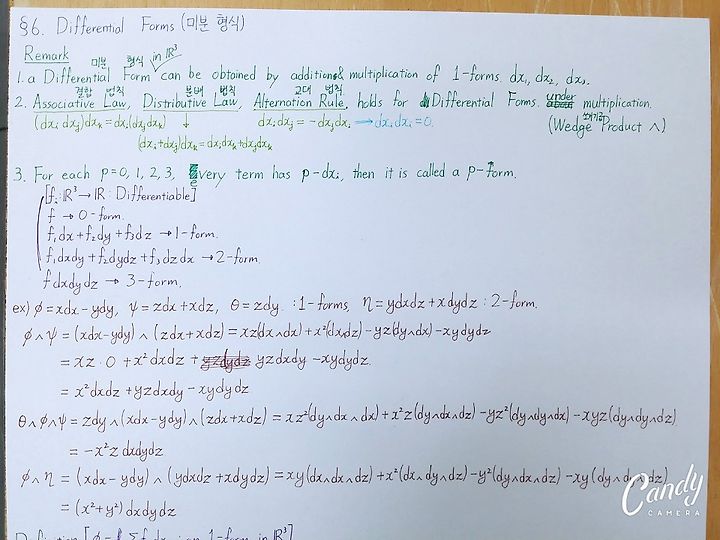 §6. Differential Forms (미분 형식)
Remark
미분 형식 in ℝ³
1. a Differential Form can be obtained by addition & multiplication of 1-forms dx₁, dx₂, dx₃.
결합 법칙 분배 법칙 교대 법칙
2. Associative Law, Distributive Law, Alternation Rule, holds for Differential Forms. under multiplication.
(dxᵢ dxⱼ)dxₖ = dxᵢ(dxⱼdxₖ) ↓ dxᵢdxⱼ = -dxⱼdxᵢ → dxᵢdxᵢ = 0. (Wedge Product ∧)
(dxᵢ+dxⱼ)dxₖ = dxᵢdxₖ + dxⱼdxₖ
3. For each p=0, 1, 2, 3, Every term has p-dxᵢ, then it is called a p-form.
[f: ℝ³→ℝ : Differentiable]
f → 0-form.
f₁dx + f₂dy + f₃dz → 1-form.
f₁dxdy + f₂dydz + f₃dzdx → 2-form.
f dxdydz → 3-form.
ex) ϕ = xdx - ydy, ψ = zdx + xdz, θ = zdy. : 1-forms, η = ydxdz + xdydz : 2-form.
ϕ∧ψ = (xdx - ydy) ∧ (zdx + xdz) = xz(dx∧dx) + x²(dx∧dz) - yz(dy∧dx) - xydydz
= xz · 0 + x²dxdz + yzdxdy - xydydz.
= x²dxdz + yzdxdy - xydydz
θ∧ϕ∧ψ = zdy ∧ (xdx - ydy) ∧ (zdx + xdz) = xz²(dy∧dx∧dx) + x²z(dy∧dx∧dz) - yz²(dy∧dy∧dx) - xyz(dy∧dy∧dz)
= -x²z dxdydz
ϕ∧η = (xdx - ydy) ∧ (ydxdz + xdydz) = xy(dx∧dx∧dz) + x²(dx∧dy∧dz) - y²(dy∧dx∧dz) - xy(dy∧dy∧dz)
= (x²+y²) dxdydz
Candy
CAMERA